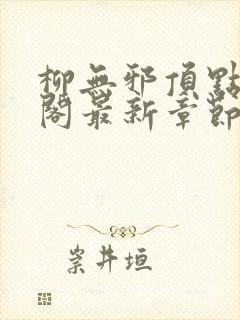 柳無邪頂點
閣最新章節
崇井垣